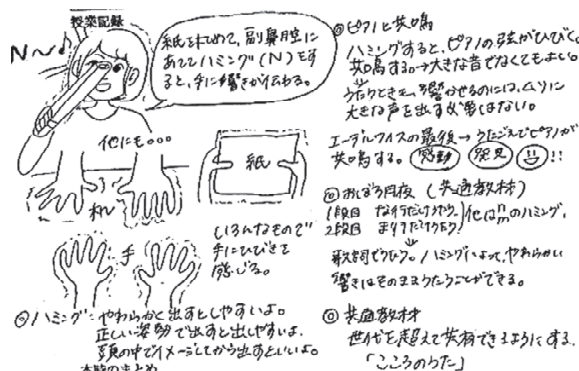 授業記録
N〜♪
紙を丸めて、副鼻腔に
あててハミング(N)をす
ると、手に響きが伝わる。
他にも。。。
机
紙
手
いろんなもので
手にひびきを
感じる。
◎ハミング:やわらかく出すとしやすいよ。
正しい姿勢で出すと出しやすいよ。
頭の中でイメージしてから出すといいよ。
本時のまとめ
◎ピアノと共鳴
ハミングすると、ピアノの弦がひびく。
共鳴する。→大きな音でなくてもよい。
うたうときも、響かせるのには、ムリに
大きな声を出す必要はない。
エーデルワイスの最後→うたごえでピアノが
共鳴する。 感動 発見 !!
◎おぼろ月夜(共通教材)
1段目 な行だけでうたう。
2段目 ま行だけでうたう 他はnmのハミング。
歌詞でうたう。ハミングによって、やわらかい
響きはそのままうたうことができる。
◎共通教材
世代を超えて共有できるようにする。
「こころのうた」